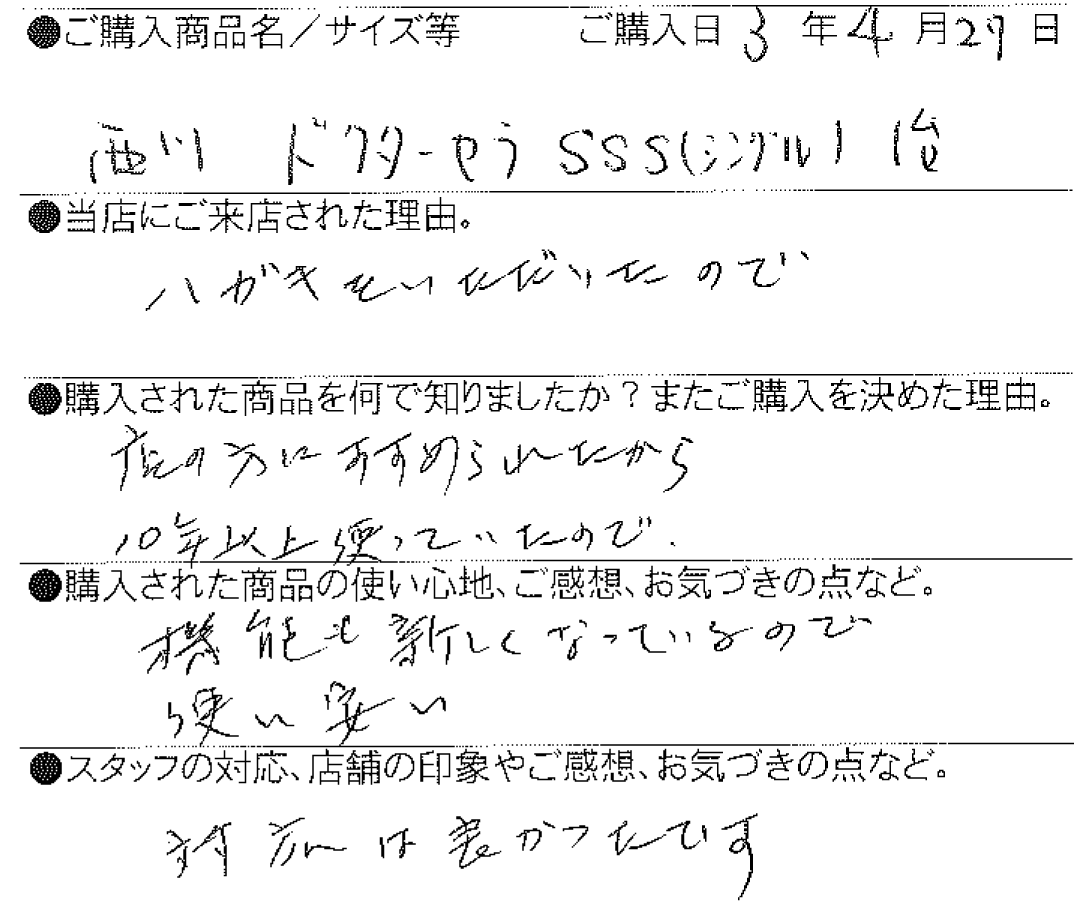 ●ご購入商品名／サイズ等　ご購入日 3 年 4 月 29 日
西川 ドクターセラ SSS(シングル) 1台
●当店にご来店された理由。
ハガキをいただいたので
●購入された商品を何で知りましたか？またご購入を決めた理由。
店の方にすすめられたから
10年以上使っていたので.
●購入された商品の使い心地、ご感想、お気づきの点など。
機能も新しくなっているので
使い安い
●スタッフの対応、店舗の印象やご感想、お気づきの点など。
対応は良かったです